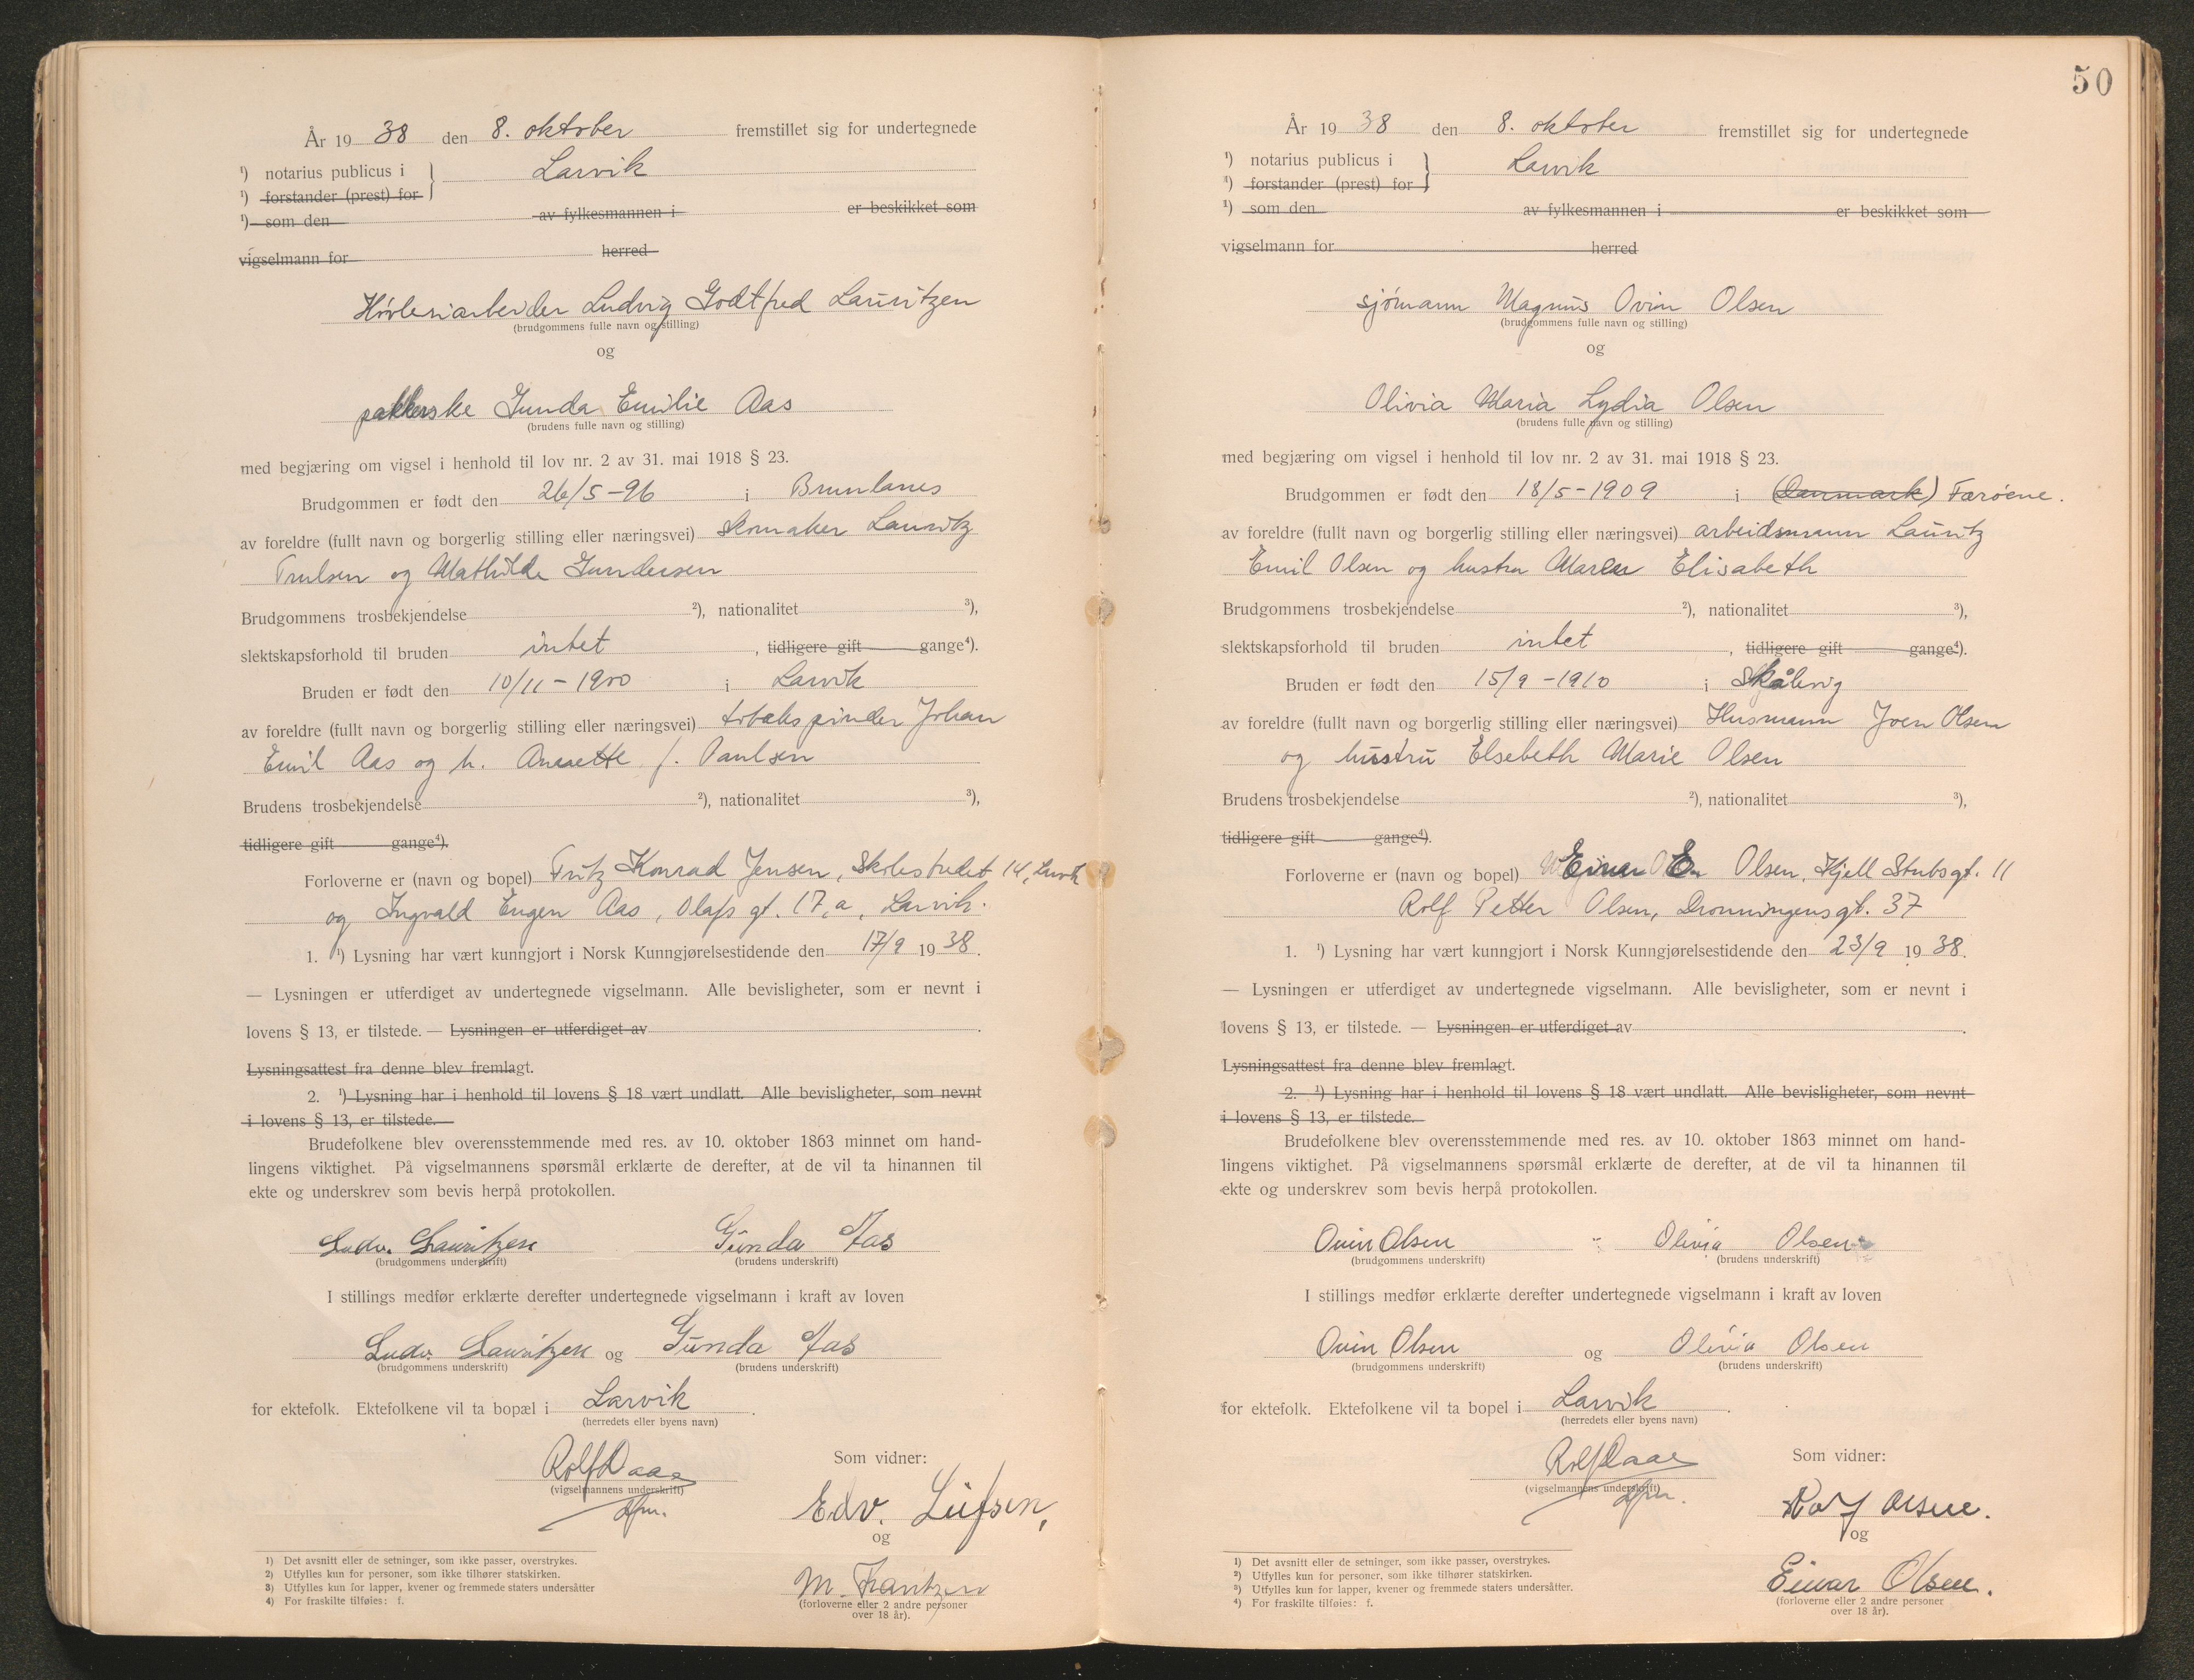 År 19 38 den 8. oktober fremstillet sig for undertegnede
¹) notarius publicus i } Larvik
¹) forstander (prest) for
¹) som den av fylkesmannen i er beskikket som
vigselmann for herred
Høvleriarbeider Ludvig Godtfred Lauritzen
(brudgommens fulle navn og stilling)
og
pakkerske Gunda Emilie Aas
(brudens fulle navn og stilling)
med begjæring om vigsel i henhold til lov nr. 2 av 31. mai 1918 § 23.
Brudgommen er født den 26/5-96 i Brunlanes
av foreldre (fullt navn og borgerlig stilling eller næringsvei) skomaker Lauritz
Trulsen og Mathilde Gundersen
Brudgommens trosbekjendelse ²), nationalitet ³),
slektskapsforhold til bruden intet , tidligere gift gange⁴).
Bruden er født den 10/11-1900 i Larvik
av foreldre (fullt navn og borgerlig stilling eller næringsvei) tobakspinder Johan
Emil Aas og h. Annette f. Paulsen
Brudens trosbekjendelse ²), nationalitet ³),
tidligere gift gange⁴).
Forloverne er (navn og bopel) Fritz Konrad Jensen, Skolestredet 14, Larvik
og Ingvald Eugen Aas, Olafs gt. 17, a, Larvik.
1. ¹) Lysning har vært kunngjort i Norsk Kunngjørelsestidende den 17/9 19 38.
— Lysningen er utferdiget av undertegnede vigselmann. Alle bevisligheter, som er nevnt i
lovens § 13, er tilstede. — Lysningen er utferdiget av .
Lysningsattest fra denne blev fremlagt.
2. ¹) Lysning har i henhold til lovens § 18 vært undlatt. Alle bevisligheter, som nevnt
i lovens § 13, er tilstede.
Brudefolkene blev overensstemmende med res. av 10. oktober 1863 minnet om hand-
lingens viktighet. På vigselmannens spørsmål erklærte de derefter, at de vil ta hinannen til
ekte og underskrev som bevis herpå protokollen.
Ludv. Lauritzen Gunda Aas
(brudgommens underskrift) (brudens underskrift)
I stillings medfør erklærte derefter undertegnede vigselmann i kraft av loven
Ludv. Lauritzen og Gunda Aas
(brudgommens underskrift) (brudens underskrift)
for ektefolk. Ektefolkene vil ta bopæl i Larvik .
(herredets eller byens navn)
Rolf Daae Som vidner:
(vigselmannens underskrift)
Edv.
og
M. Frantzen
(forloverne eller 2 andre personer
over 18 år).
1) Det avsnitt eller de setninger, som ikke passer, overstrykes.
2) Utfylles kun for personer, som ikke tilhører statskirken.
3) Utfylles kun for lapper, kvener og fremmede staters undersåtter
4) For fraskilte tilføies: f.
50
År 19 38 den 8. oktober fremstillet sig for undertegnede
¹) notarius publicus i } Larvik
¹) forstander (prest) for
¹) som den av fylkesmannen i er beskikket som
vigselmann for herred
sjømann Magnus Ovin Olsen
(brudgommens fulle navn og stilling)
og
Olivia Maria Lydia Olsen
(brudens fulle navn og stilling)
med begjæring om vigsel i henhold til lov nr. 2 av 31. mai 1918 § 23.
Brudgommen er født den 18/5-1909 i (Danmark) Færöene.
av foreldre (fullt navn og borgerlig stilling eller næringsvei) arbeidsmann Lauritz
Emil Olsen og hustru Maren Elisabeth
Brudgommens trosbekjendelse ²), nationalitet ³),
slektskapsforhold til bruden intet , tidligere gift gange⁴).
Bruden er født den 15/9-1910 i Skålevig
av foreldre (fullt navn og borgerlig stilling eller næringsvei) Husmann Joen Olsen
og hustru Elsebeth Marie Olsen
Brudens trosbekjendelse ²), nationalitet ³),
tidligere gift gange⁴).
Forloverne er (navn og bopel) Einar Olsen, Kjell Stubsgt. 11
Rolf Petter Olsen, Dronningensgt. 37
1. ¹) Lysning har vært kunngjort i Norsk Kunngjørelsestidende den 23/9 19 38.
— Lysningen er utferdiget av undertegnede vigselmann. Alle bevisligheter, som er nevnt i
lovens § 13, er tilstede. — Lysningen er utferdiget av .
Lysningsattest fra denne blev fremlagt.
2. ¹) Lysning har i henhold til lovens § 18 vært undlatt. Alle bevisligheter, som nevnt
i lovens § 13, er tilstede.
Brudefolkene blev overensstemmende med res. av 10. oktober 1863 minnet om hand-
lingens viktighet. På vigselmannens spørsmål erklærte de derefter, at de vil ta hinannen til
ekte og underskrev som bevis herpå protokollen.
Ovin Olsen Olivia Olsen
(brudgommens underskrift) (brudens underskrift)
I stillings medfør erklærte derefter undertegnede vigselmann i kraft av loven
Ovin Olsen og Olivia Olsen
(brudgommens underskrift) (brudens underskrift)
for ektefolk. Ektefolkene vil ta bopel i Larvik .
(herredets eller byens navn)
Rolf Daae Som vidner:
(vigselmannens underskrift)
Rolf Olsen.
og
Einar Olsen.
(forloverne eller 2 andre personer
over 18 år).
1) Det avsnitt eller de setninger, som ikke passer, overstrykes.
2) Utfylles kun for personer, som ikke tilhører statskirken.
3) Utfylles kun for lapper, kvener og fremmede staters undersåtter.
4) For fraskilte tilføies: f.